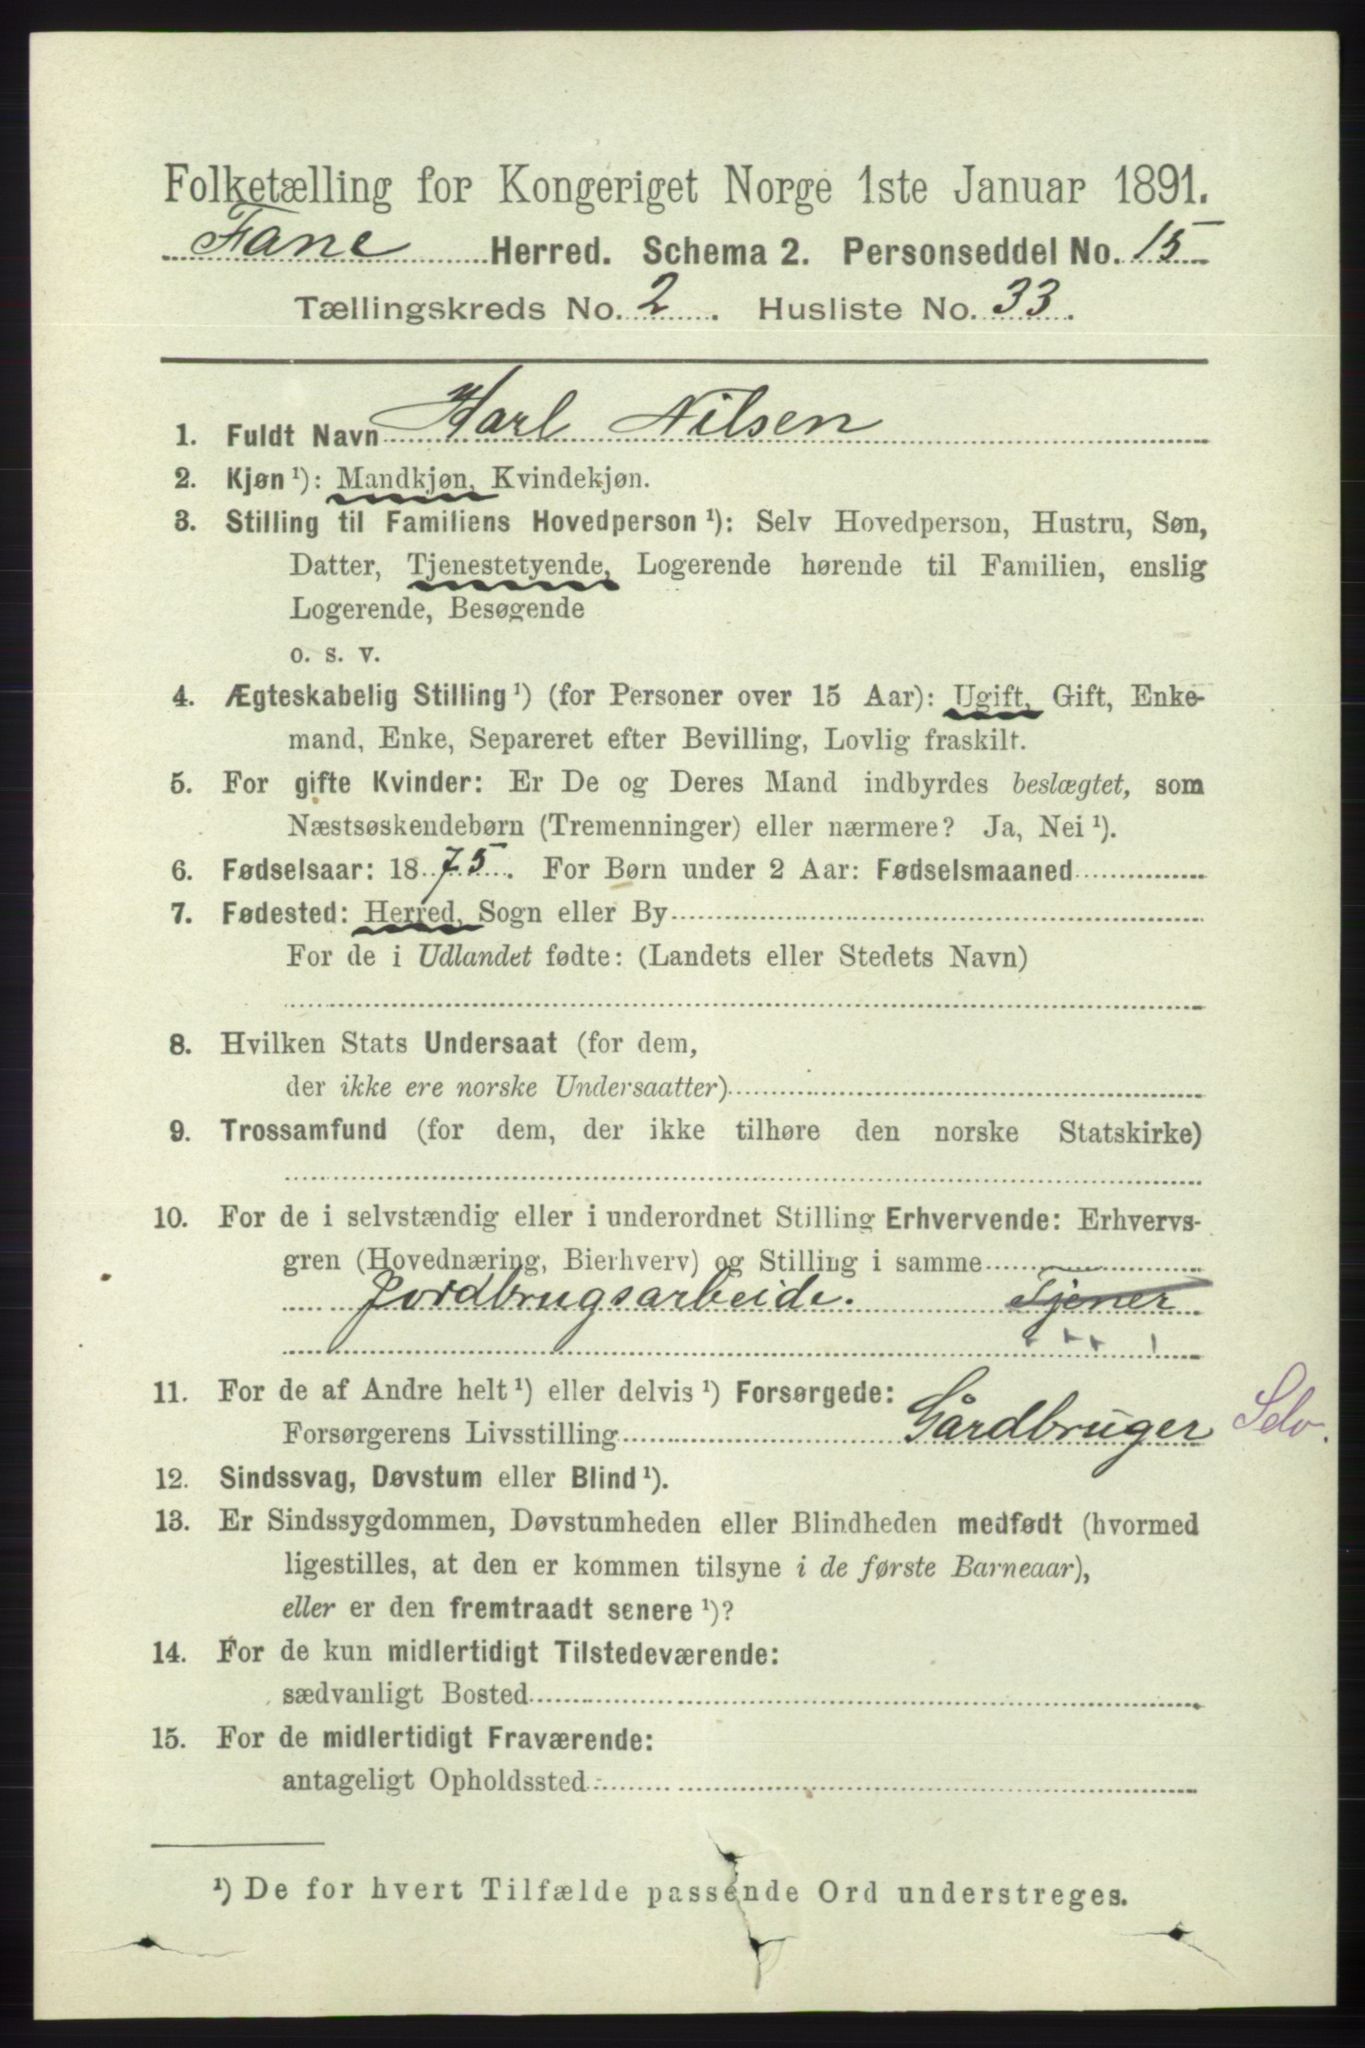 Folketælling for Kongeriget Norge 1ste Januar 1891.
Fane Herred. Schema 2. Personseddel No. 15
Tællingskreds No. 2. Husliste No. 33.
1. Fuldt Navn Karl Nilsen
2. Kjøn¹): Mandkjøn, Kvindekjøn.
3. Stilling til Familiens Hovedperson¹): Selv Hovedperson, Hustru, Søn,
Datter, Tjenestetyende, Logerende hørende til Familien, enslig
Logerende, Besøgende
o. s. v.
4. Ægteskabelig Stilling¹) (for Personer over 15 Aar): Ugift, Gift, Enke-
mand, Enke, Separeret efter Bevilling, Lovlig fraskilt.
5. For gifte Kvinder: Er De og Deres Mand indbyrdes beslægtet, som
Næstsøskendebørn (Tremenninger) eller nærmere? Ja, Nei¹).
6. Fødselsaar: 1875. For Børn under 2 Aar: Fødselsmaaned
7. Fødested: Herred, Sogn eller By
For de i Udlandet fødte: (Landets eller Stedets Navn)
8. Hvilken Stats Undersaat (for dem,
der ikke ere norske Undersaatter)
9. Trossamfund (for dem, der ikke tilhøre den norske Statskirke)
10. For de i selvstændig eller i underordnet Stilling Erhvervende: Erhvervs-
gren (Hovednæring, Bierhverv) og Stilling i samme
Jordbrugsarbeide. Tjener
11. For de af Andre helt¹) eller delvis¹) Forsørgede:
Forsørgerens Livsstilling Gårdbruger Selv.
12. Sindssvag, Døvstum eller Blind¹).
13. Er Sindssygdommen, Døvstumheden eller Blindheden medfødt (hvormed
ligestilles, at den er kommen tilsyne i de første Barneaar),
eller er den fremtraadt senere¹)?
14. For de kun midlertidigt Tilstedeværende:
sædvanligt Bosted
15. For de midlertidigt Fraværende:
antageligt Opholdssted
¹) De for hvert Tilfælde passende Ord understreges.